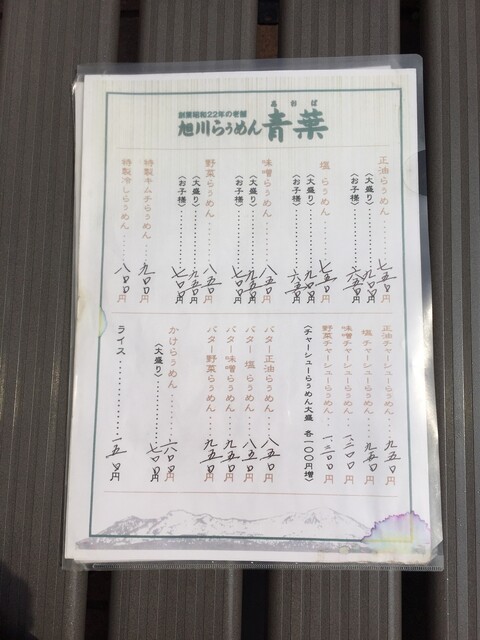 創業昭和22年の老舗
旭川らぅめん青葉
あおば
正油らぅめん‥‥‥七五〇円
(大盛り)‥‥‥九〇〇円
(お子様)‥‥‥六五〇円
塩らぅめん‥‥‥七五〇円
(大盛り)‥‥‥九五〇円
(お子様)‥‥‥六五〇円
味噌らぅめん‥‥‥八五〇円
(大盛り)‥‥‥九五〇円
(お子様)‥‥‥七〇〇円
野菜らぅめん‥‥‥八五〇円
(大盛り)‥‥‥九五〇円
(お子様)‥‥‥七〇〇円
特製キムチらぅめん‥‥‥九〇〇円
特製冷しらぅめん‥‥‥八〇〇円
正油チャーシューらぅめん‥‥九五〇円
塩チャーシューらぅめん‥‥九五〇円
味噌チャーシューらぅめん‥‥一、二〇〇円
野菜チャーシューらぅめん‥‥一、二〇〇円
(チャーシューらぅめん大盛 各一〇〇円増)
バター正油らぅめん‥‥‥八五〇円
バター塩らぅめん‥‥‥八五〇円
バター味噌らぅめん‥‥‥九五〇円
バター野菜らぅめん‥‥‥九五〇円
かけらぅめん‥‥‥六〇〇円
(大盛り)‥‥‥七〇〇円
ライス‥‥‥一五〇円